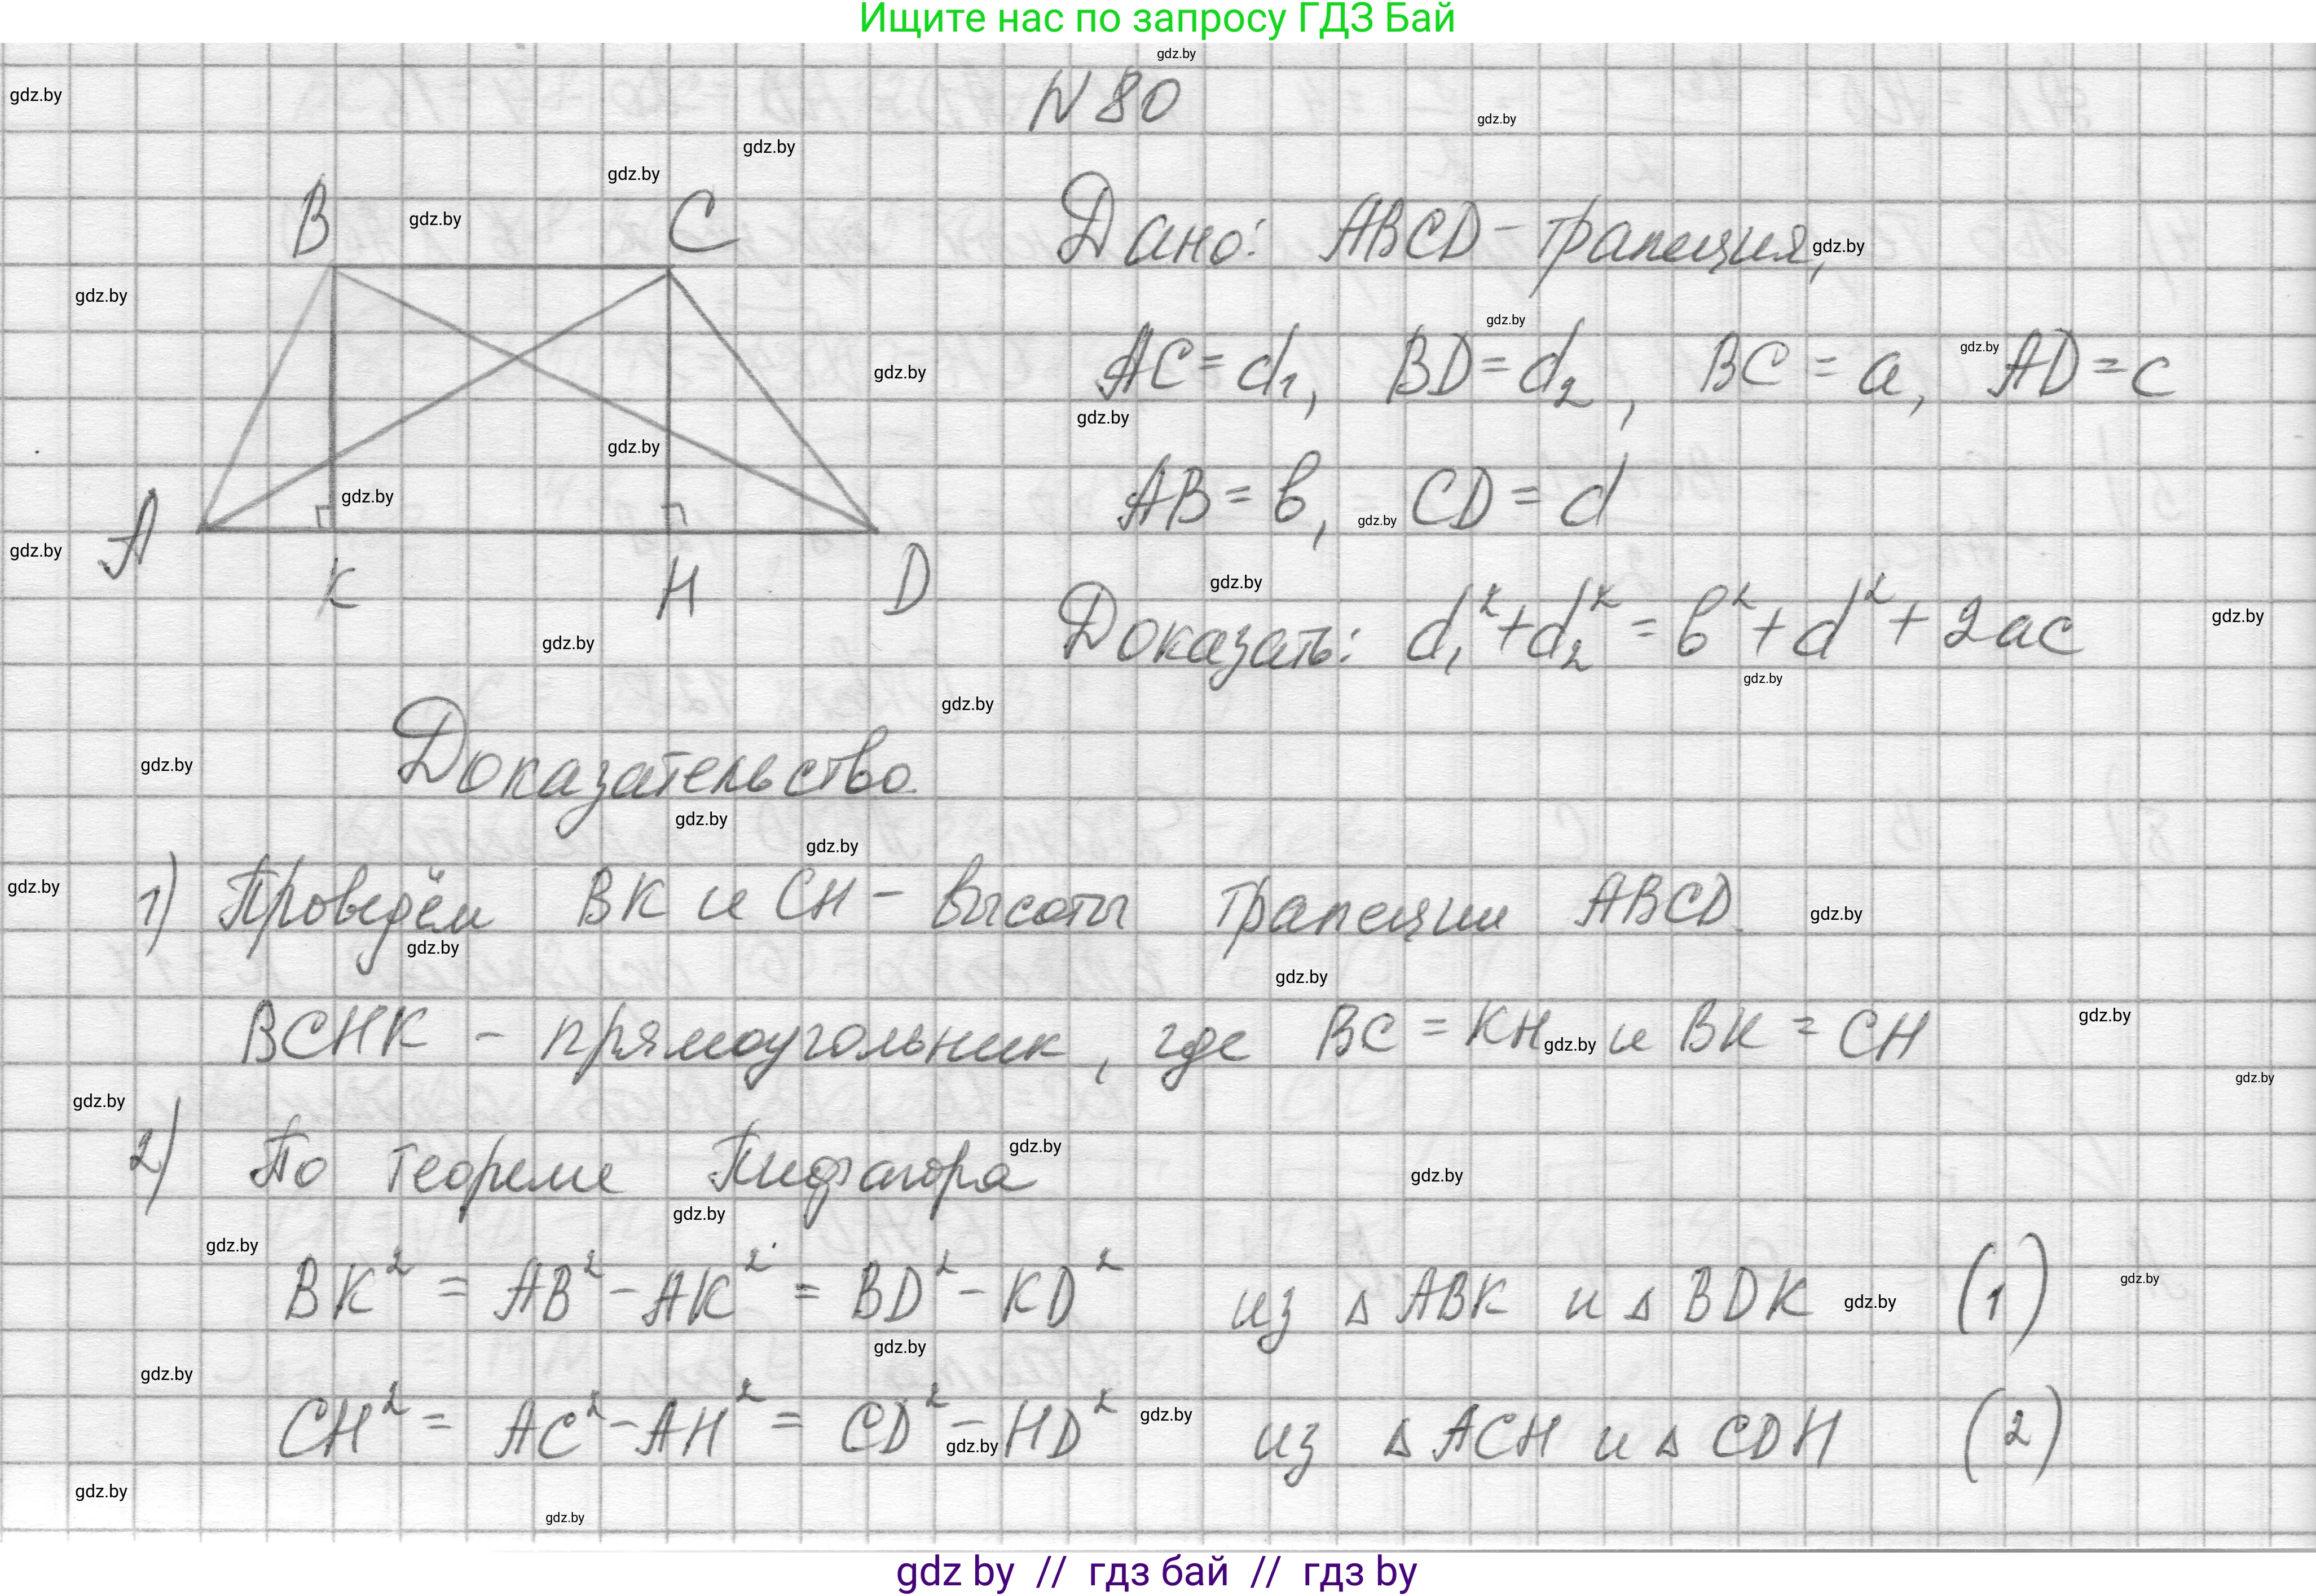 Ищите нас по запросу ГДЗ Бай
N 80
B C
A K H D
Дано: ABCD - трапеция,
AC = d₁, BD = d₂, BC = a, AD = c
AB = в, CD = d
Доказать: d₁² + d₂² = в² + d² + 2ac
Доказательство.
1) Проведём BK и CH - высоты трапеции ABCD.
BCHK - прямоугольник, где BC = KH и BK = CH
2) По теореме Пифагора
BK² = AB² - AK² = BD² - KD² из △ ABK и △ BDK (1)
CH² = AC² - AH² = CD² - HD² из △ ACH и △ CDH (2)
gdz by // гдз бай // гдз by